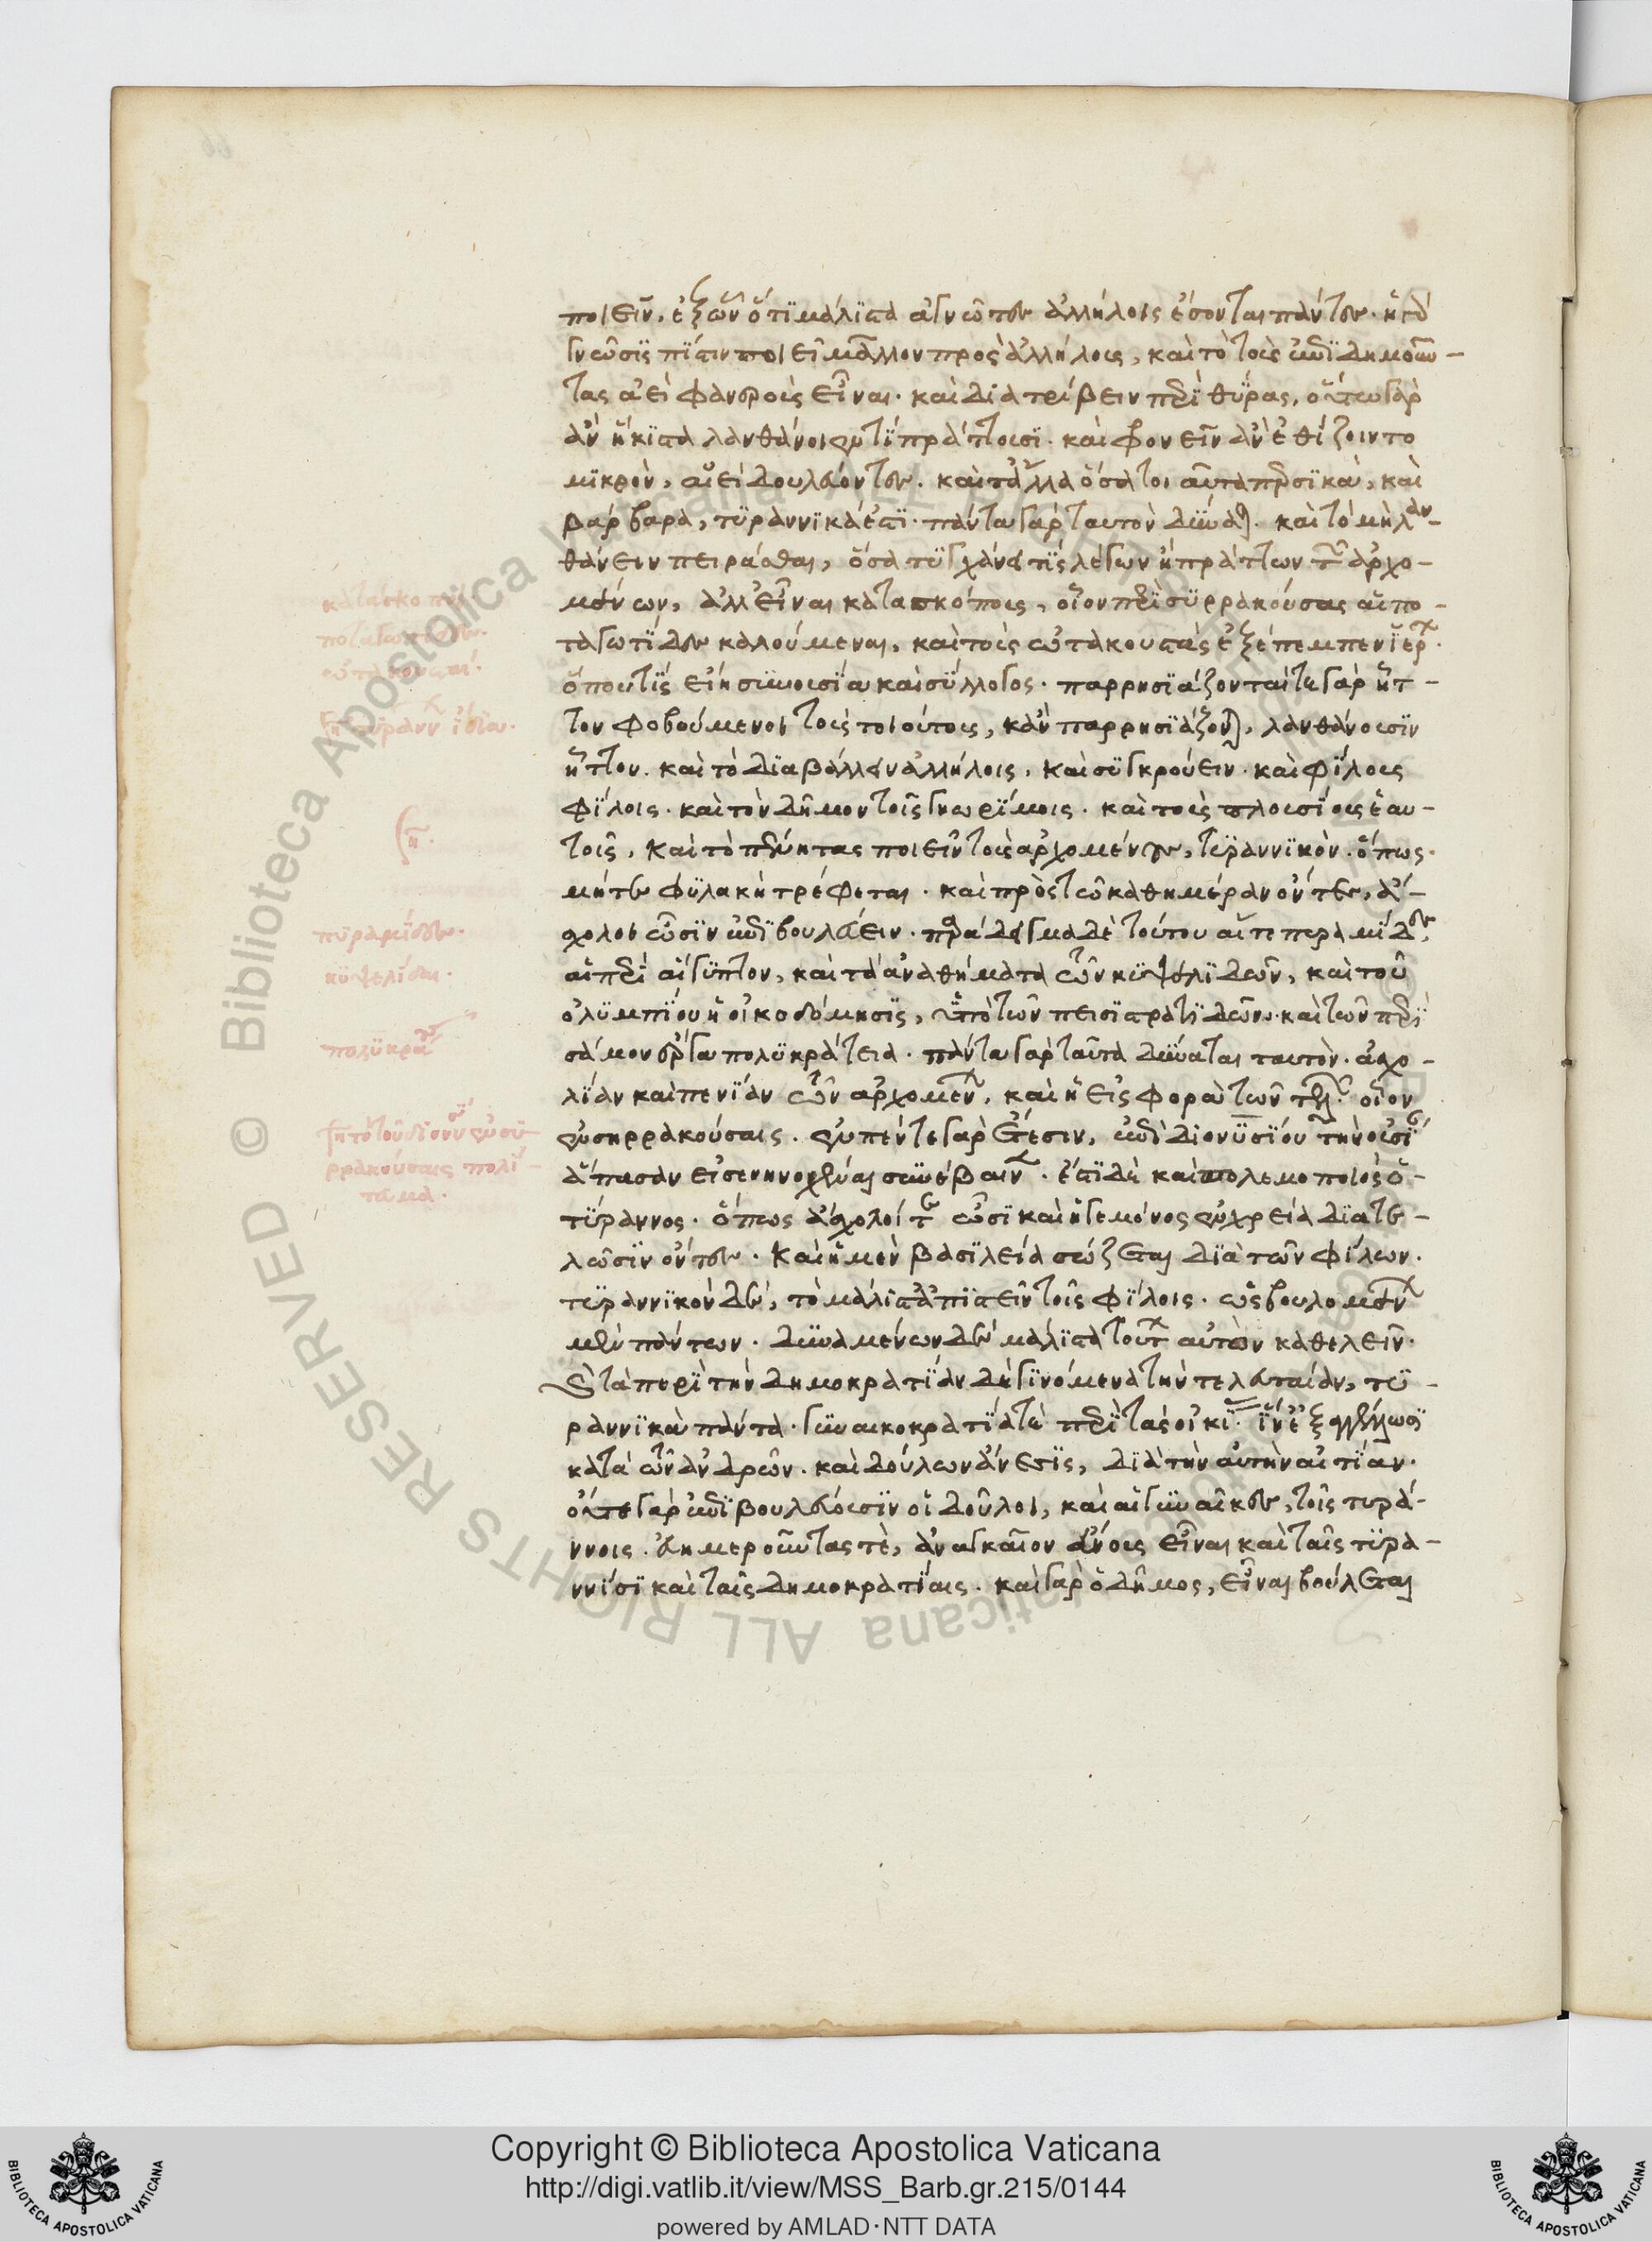 ποιεῖν, ἐξ ὧν ὅτι μάλιστα ἀγνῶτες ἀλλήλοις ἔσονται πάντες. ἡ γὰρ
γνῶσις πίστιν ποιεῖ μᾶλλον πρὸς ἀλλήλους, καὶ τὸ τοὺς ἐπιδημοῦν-
τας ἀεὶ φανεροὺς εἶναι. καὶ διατρίβειν περὶ θύρας, οὕτω γὰρ
ἂν ἥκιστα λανθάνοιεν τί πράττουσι. καὶ φρονεῖν ἂν ἐθίζοιντο
μικρὸν, αἰεὶ δουλεύοντες. καὶ τἄλλα ὅσα τοιαῦτα περσικὰ, καὶ
βάρβαρα, τυραννικά ἐστι. πάντα γὰρ ταυτὸν δύναται. καὶ τὸ μὴ λαν-
θάνειν πειρᾶσθαι, ὅσα τυγχάνει τις λέγων ἢ πράττων τῶν ἀρχο-
μένων, ἀλλ' εἶναι κατασκόπους, οἷον περὶ συρρακούσας αἱ πο-
ταγωγίδες καλούμεναι, καὶ τοὺς ὠτακουστὰς ἐξέπεμπεν ἱέρων.
ὅπου τις εἴη συνουσία καὶ σύλλογος. παρρησιάζονταί τε γὰρ ἧτ-
τον φοβούμενοι τοὺς τοιούτους, κἂν παρρησιάζωνται, λανθάνουσιν
ἧττον. καὶ τὸ διαβάλλειν ἀλλήλοις, καὶ συγκρούειν. καὶ φίλους
φίλοις. καὶ τὸν δῆμον τοῖς γνωρίμοις. καὶ τοὺς πλουσίους ἑαυ-
τοῖς, καὶ τὸ πένητας ποιεῖν τοὺς ἀρχομένους, τυραννικὸν. ὅπως
μήτε φυλακὴ τρέφεται. καὶ πρὸς τῷ καθημέραν ὄντες, ἄ-
σχολοι ὦσιν ἐπιβουλεύειν. παράδειγμα δὲ τούτου αἵ τε πυραμίδες
αἱ περὶ αἴγυπτον, καὶ τὰ ἀναθήματα τῶν κυψελιδῶν, καὶ τοῦ
ὀλυμπίου ἡ οἰκοδόμησις, ὑπὸ τῶν πεισιστρατιδῶν. καὶ τῶν περὶ
σάμον ἔργα πολυκράτεια. πάντα γὰρ ταῦτα δύναται ταυτὸν. ἀσχο-
λίαν καὶ πενίαν τῶν ἀρχομένων, καὶ ἡ εἰσφορὰ τῶν τελῶν. οἷον
ἐν συρρακούσαις. ἐν πέντε γὰρ ἔτεσιν, ἐπὶ διονυσίου τὴν οὐσί-
αν ἅπασαν εἰσενηνοχέναι συνέβαινεν. ἔστι δὲ καὶ πολεμοποιὸς ὁ
τύραννος. ὅπως ἄσχολοί τε ὦσι καὶ ἡγεμόνος ἐν χρεία διατε-
λῶσιν ὄντες. καὶ ἡ μὲν βασιλεία σώζεται διὰ τῶν φίλων.
τυραννικὸν δὲ, τὸ μάλιστ' ἀπιστεῖν τοῖς φίλοις. ὡς βουλομένων
μὲν πάντων. δυναμένων δὲ μάλιστα τούτων αὐτὸν καθελεῖν.
καὶ τὰ περὶ τὴν δημοκρατίαν δὲ γινόμενα τὴν τελευταίαν, τυ-
ραννικὰ πάντα. γυναικοκρατία τὲ περὶ τὰς οἰκίας. ἵν' ἐξαγγέλλωσι
κατὰ τῶν ἀνδρῶν. καὶ δούλων ἄνεσις, διὰ τὴν αὐτὴν αἰτίαν.
οὔτε γὰρ ἐπιβουλεύουσιν οἱ δοῦλοι, καὶ αἱ γυναῖκες, τοῖς τυρά-
ννοις. εὐημεροῦντας τὲ, ἀναγκαῖον εὔνους εἶναι καὶ ταῖς τυρα-
ννίσι καὶ ταῖς δημοκρατίαις. καὶ γὰρ ὁ δῆμος, εἶναι βούλεται
κατάσκοποι
ποταγωγίδες.
ὠτακουσταί.
πυραμίδες.
κυψελίδαι.
πολυκράτους
ρρακούσαις
Copyright © Biblioteca Apostolica Vaticana
http://digi.vatlib.it/view/MSS_Barb.gr.215/0144
powered by AMLAD·NTT DATA
BIBLIOTECA APOSTOLICA VATICANA
BIBLIOTECA APOSTOLICA VATICANA